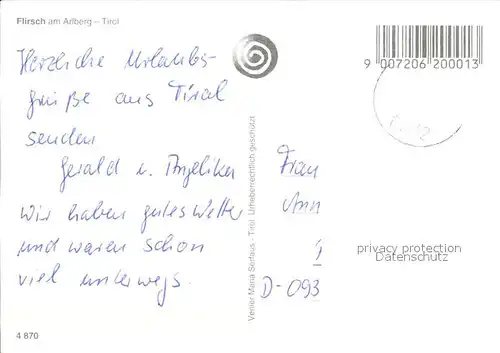 Flirsch am Arlberg – Tirol
Herzliche Urlaubs-
grüße aus Tirol
senden
Gerald u. Angelika
Wir haben gutes Wetter
und waren schon
viel unterwegs.
4 870
Verlag Maria Serfaus - Tirol Urheberrechtlich geschützt
9 007206 200013
Frau
Ann
D-093
privacy protection
Datenschutz